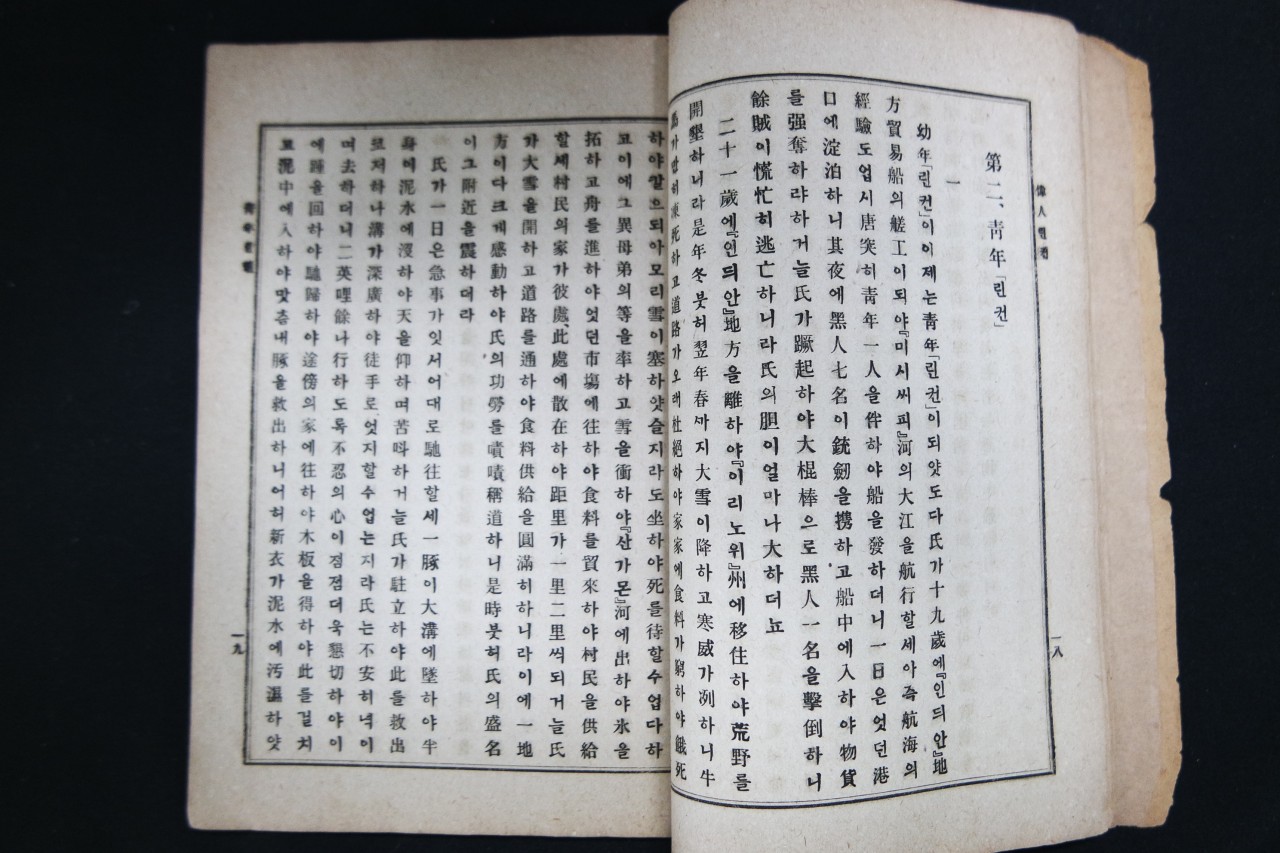 偉人
一八
第二、靑年「린컨」
一
幼年「린컨」이이제는靑年「린컨」이되얏도다氏가十九歲에『인듸안』地
方貿易船의艖工이되야『미시써피』河의大江을航行할세아즉航海의
經驗도업시唐突히靑年一人을伴하야船을發하더니一日은엇던港
口에淀泊하니其夜에黑人七名이銃劒을携하고船中에入하야物貨
를强奪하랴하거늘氏가蹶起하야大棍棒으로黑人一名을擊倒하니
餘賊이慌忙히逃亡하니라氏의胆이얼마나大하더뇨
二十一歲에『인듸안』地方을離하야『이리노위』州에移住하야荒野를
開墾하니라是年冬붓허翌年春까지大雪이降하고寒威가冽하니牛
馬가만히凍死하고道路가오래杜絶하야家家에食料가窮하야餓死
하야갈으되아모리雪이塞하얏슬지라도坐하야死를待할수업다하
고이에그異母弟의等을率하고雪을衝하야『산가몬』河에出하야氷을
拓하고舟를進하야엇던市塲에往하야食料를貿來하야村民을供給
할세村民의家가彼處、此處에散在하야距里가一里二里씩되거늘氏
가大雪을開하고道路를通하야食料供給을圓滿히하니라이에一地
方이다크게感動하야氏의功勞를嘖嘖稱道하니是時붓허氏의盛名
이그附近을震하더라
氏가一日은急事가잇서어대로馳往할세一豚이大溝에墜하야半
身에泥水에沒하야天을仰하며苦叫하거늘氏가駐立하야此를救出
코저하나溝가深廣하야徒手로엇지할수업는지라氏는不安히녁이
며去하더니二英哩餘나行하도록不忍의心이점점대욱懇切하야이
에踵을回하야馳歸하야途傍의家에往하야木板을得하야此를걸치
고泥中에入하야맛츰내豚을救出하니어허新衣가泥水에汚濕하얏
一九